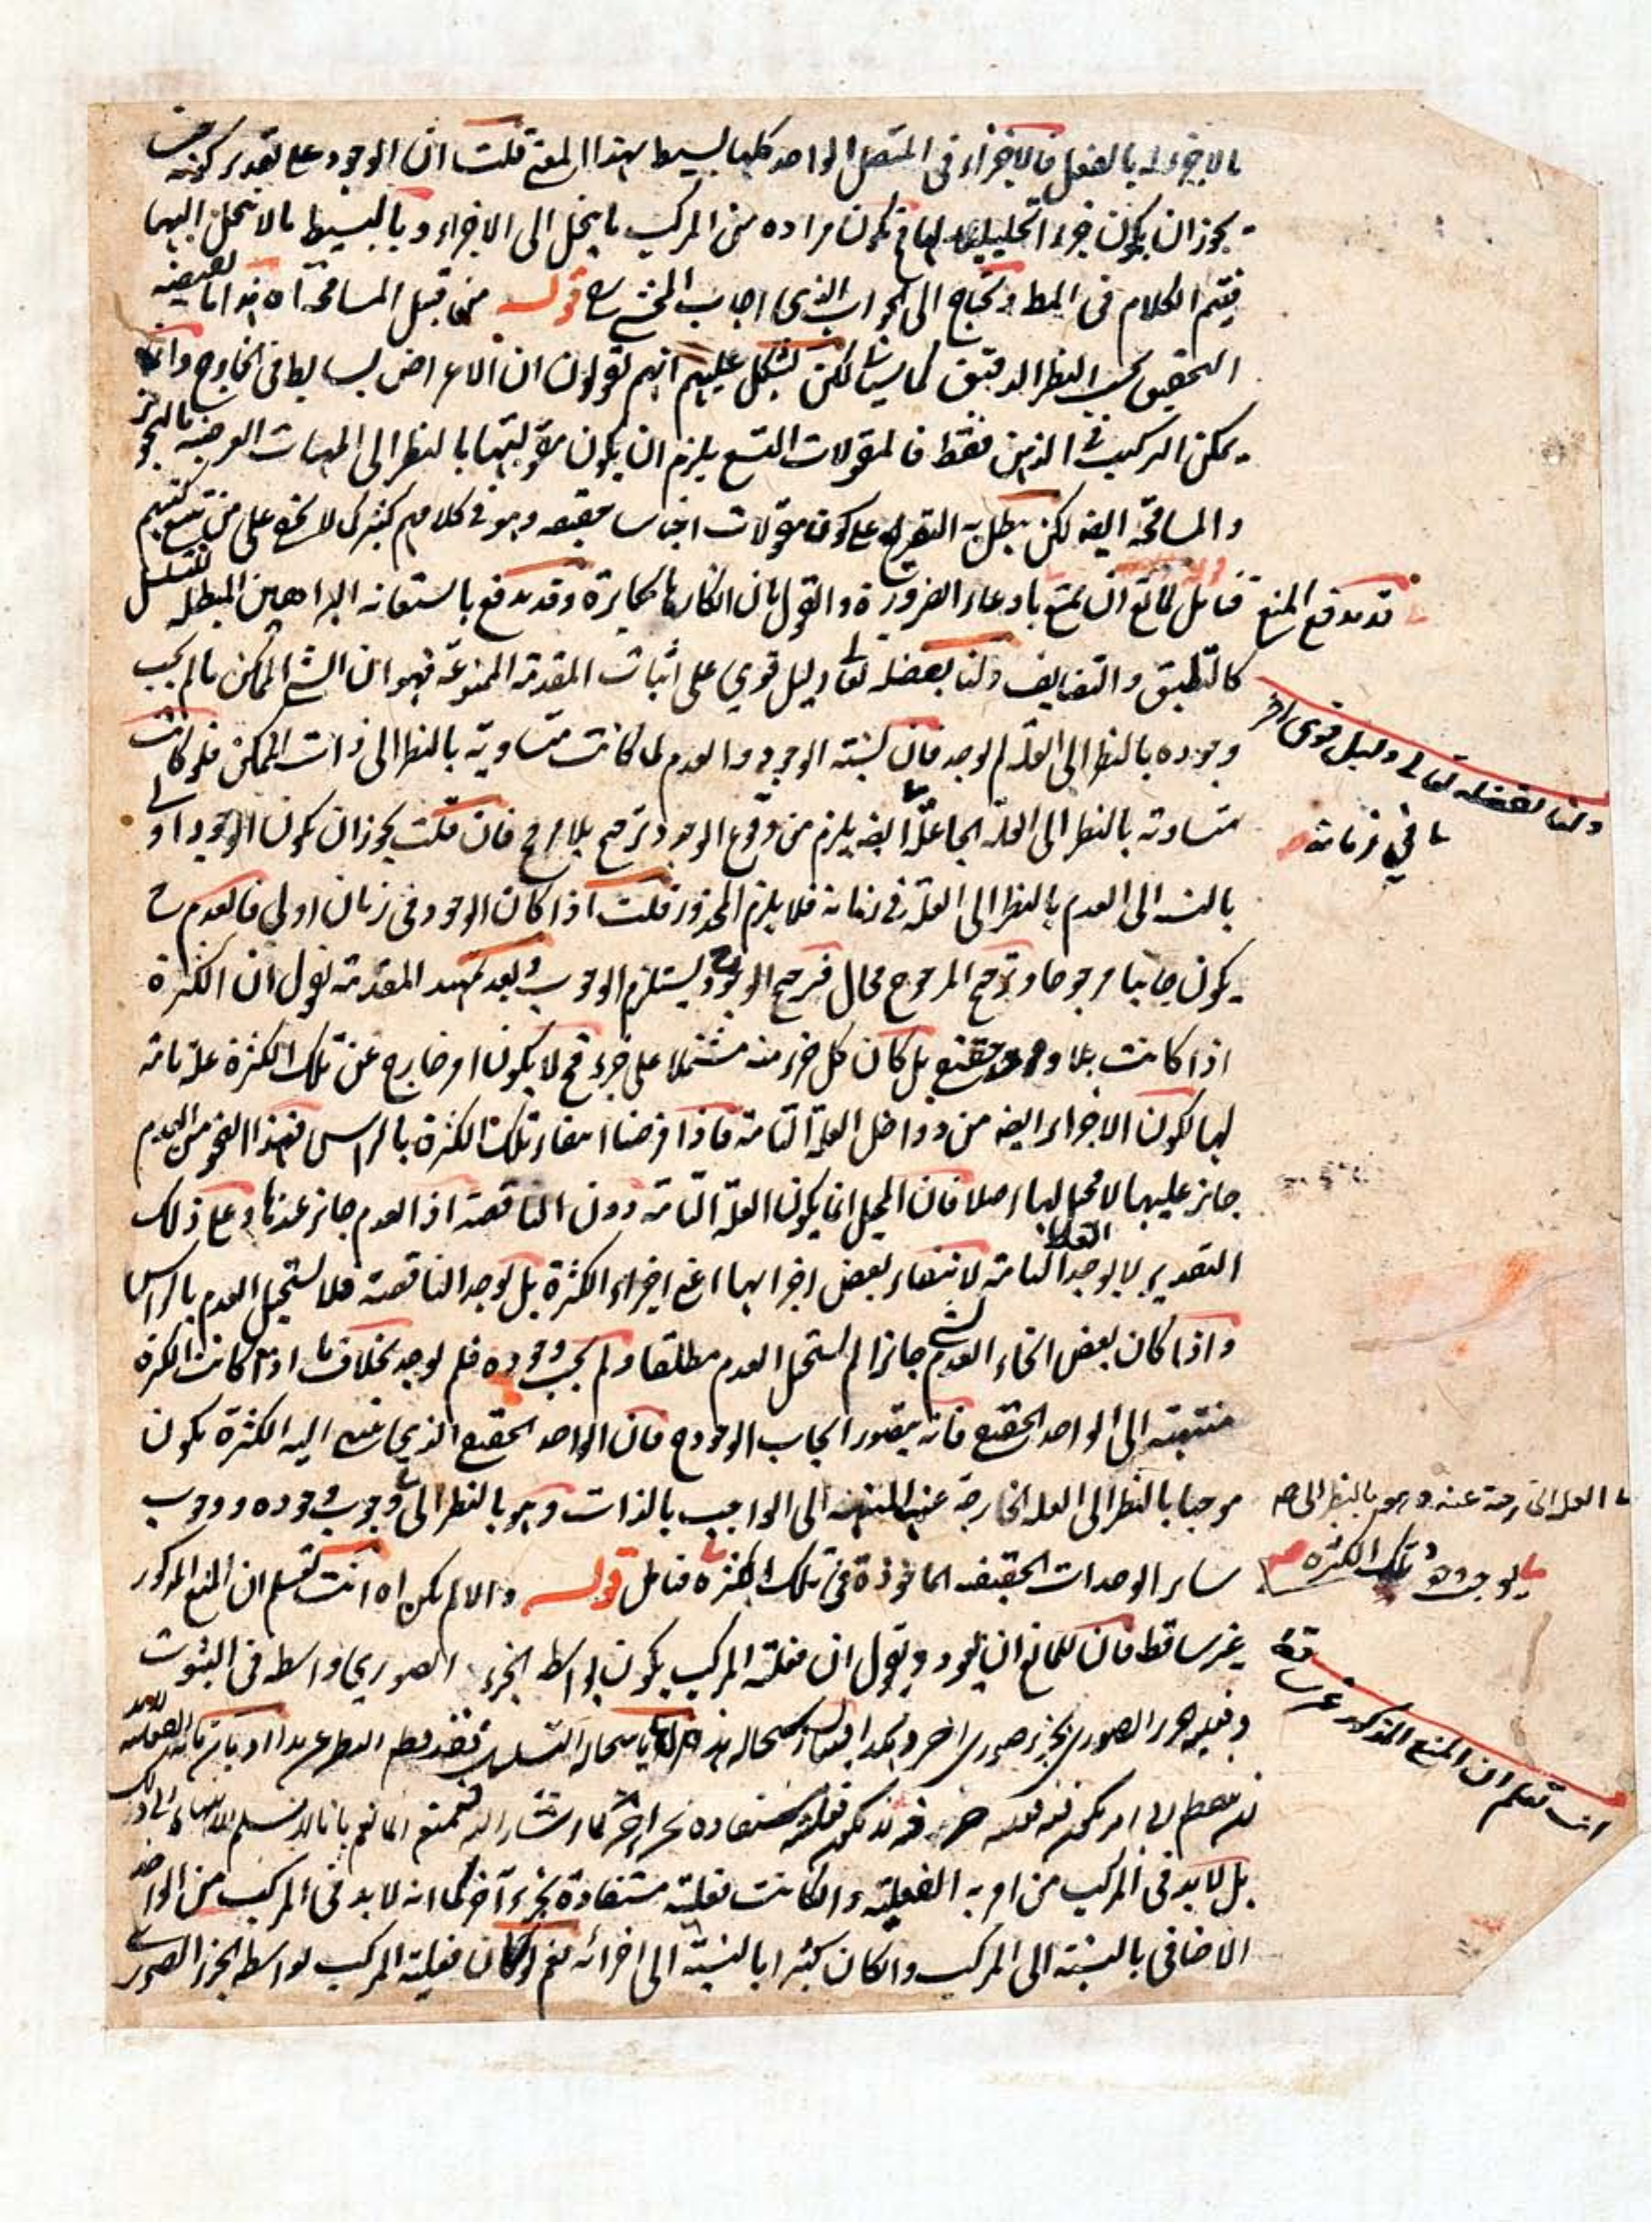 مالاجزء له بالفعل فالاجزاء فى المتصل الواحد كلها بسيط بهذا المعنى قلت ان الوجود على تقدير كونه
يجوز ان يكون جزء التحليلية لها فح يكون مراده من المركب ما ينحل الى الاجزاء و بالبسيط مالا ينحل اليها
فيتم الكلام فى المط و يحتاج الى الجواب الذى اجاب المحشى قوله من قبيل المسامحة اه هذا ما يقتضيه
التحقيق بحسب النظر الدقيق كما سيأتى لكن يشكل عليهم انهم يقولون ان الاعراض بسايط فى الخارج وانما
يمكن التركيب فى الذهن فقط فالمقولات التسع يلزم ان يكون مقوليتها بالنظر الى المهيات العرضية بالتجوز
والمسامحة ايضا لكن يبطل به التصريح على كون المقولات اجناسا حقيقه وهو فى كلامهم كثير كما لا يخفى على من تتبع كتبهم
فتامل للمانع ان يمنع بادعاء الضرورة والقول بان انكارها مكابرة وقد يدفع باستعانه البراهين المبطله للتسلسل
كالتطبيق والتضايف ولنا بفضله تعالى دليل قوي على اثبات المقدمة الممنوعة فهو ان الشئ الممكن مالم يجب
وجوده بالنظر الى العلة لم يوجد فان نسبته الوجود والعدم لما كانت متساوية بالنظر الى ذات الممكن فلو كانت
متساوية بالنظر الى العلة الجاعلة ايضا يلزم من وقوع الوجود ترجيح بلا مرجح فان قلت يجوز ان يكون الوجود اولى
بالنسبة الى العدم بالنظر الى العلة فى زمانه فلا يلزم المحذور قلت اذا كان الوجود فى زمان اولى فالعدم ح
يكون جانبا مرجوحا وترجيح المرجوح محال فترجيح الوجود يستلزم الوجوب وبعد تمهيد المقدمة نقول ان الكثرة
اذا كانت بلا واحد حقيقى بل كان كل جزء منه مشتملا على جزء فح لا يكون امر خارج عن تلك الكثرة علة تامة
لها لكون الاجزاء ايضا من دواخل العلة التامة فاذا فرضنا انتفاء تلك الكثرة بالراس فهذا النحو من العدم
جائز عليها لا محيل لها اصلا فان المحيل انما يكون العلة التامة دون الناقصة اذ العدم جائز عندها وعلى ذلك
التقدير لا يوجد العلة التامة لانتفاء بعض اجزائها اعنى اجزاء الكثرة بل يوجد الناقصة فلا يستحيل العدم بالراس
واذا كان بعض انحاء العدم لشئ جائزا لم يستحل العدم مطلقا ولم يجب وجوده فلم يوجد بخلاف ما اذا كانت الكثرة
منتهية الى الواحد الحقيقى فانه يتصور ايجاب الوجود ح فان الواحد الحقيقى الذى ينتهى اليه الكثرة يكون
موجبا بالنظر الى العلة الخارجة عنه المنتهية الى الواجب بالذات وهو بالنظر الى وجوب وجوده ووجوب
ساير الوحدات الحقيقيه الماخوذة فى تلك الكثرة فتامل قوله والا لم يكن اه انت تعلم ان المنع المذكور
غير ساقط فان للمانع ان يعود ويقول ان فعلية المركب يكون بواسطة الجزء الصوري واسطه فى الثبوت
وفعلية الجزء الصورى بجزء صورى اخر وهكذا
بل لابد فى المركب من امر به الفعلية وان كانت فعليته مستفادة بجزء آخر كما انه لابد فى المركب من الواحد
الاضافى بالنسبة الى المركب وان كان كثيرا بالنسبة الى اجزائه نعم لو كان فعلية المركب بواسطه الجزء الصورى
قد يدفع المنع
ولنا بفضله تعالى دليل قوى اه
فى زمانه
العلة الخارجة عنه وهو بالنظر الى
تلك الكثرة
انت تعلم ان المنع المذكور غير ساقط